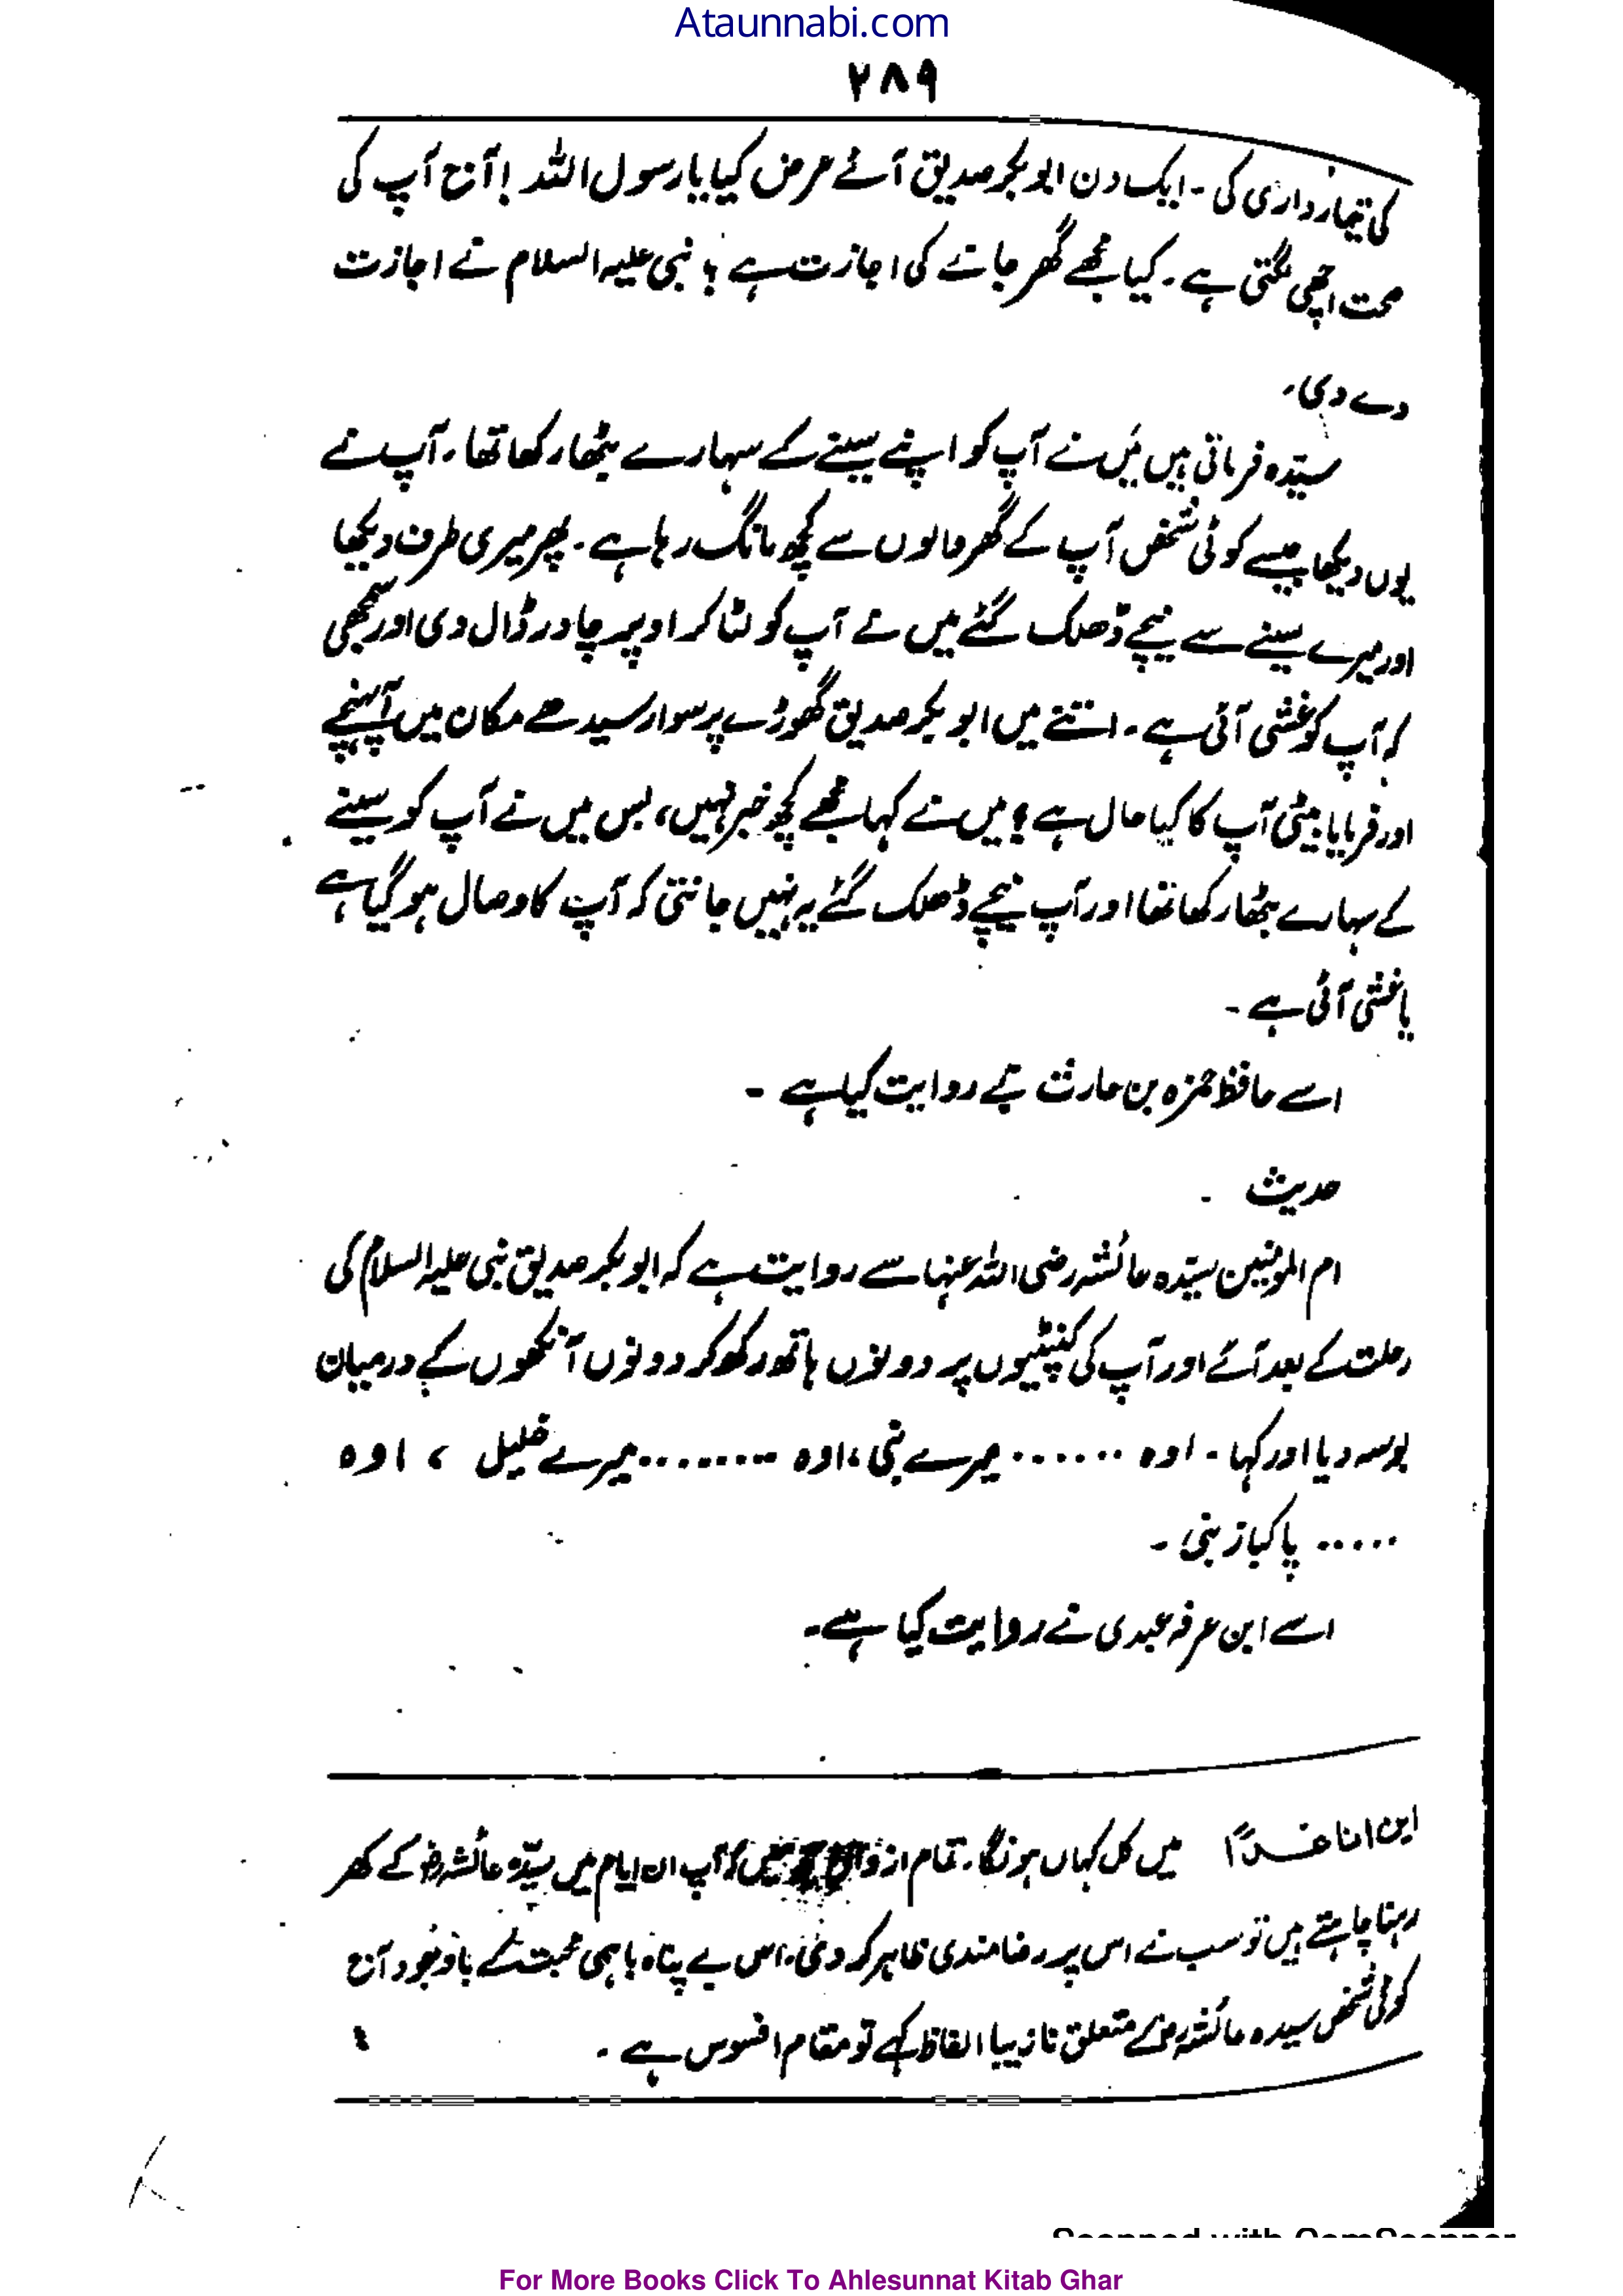 Ataunnabi.com
۲۸۹
کی تیمارداری کی ۔ ایک دن ابوبکر صدیق آئے عرض کیا یا رسول اللہ ! آج آپ کی
صحت اچھی لگتی ہے ۔ کیا مجھے گھر جانے کی اجازت ہے ؟ نبی علیہ السلام نے اجازت
دے دی ۔
سیّدہ فرماتی ہیں میں نے آپ کو اپنے سینے کے سہارے بٹھا رکھا تھا ۔ آپ نے
یوں دیکھا جیسے کوئی شخص آپ کے گھر والوں سے کچھ مانگ رہا ہے ۔ پھر میری طرف دیکھا
اور میرے سینے سے نیچے ڈھلک گئے میں نے آپ کو لٹا کر اوپر چادر ڈال دی اور سمجھی
کہ آپ کو غشی آئی ہے ۔ اتنے میں ابوبکر صدیق گھوڑے پر سوار سیدھے مکان میں آپہنچے
اور فرمایا بیٹی آپ کا کیا حال ہے ؟ میں نے کہا مجھے کچھ خبر نہیں ، بس میں نے آپ کو سینے
کے سہارے بٹھا رکھا تھا اور آپ نیچے ڈھلک گئے یہ نہیں جانتی کہ آپ کا وصال ہو گیا ہے
یا غشی آئی ہے ۔
اسے حافظ حمزہ بن حارث نے روایت کیا ہے ۔
حدیث ۔
ام المومنین سیّدہ عائشہ رضی اللہ عنہا سے روایت ہے کہ ابوبکر صدیق نبی علیہ السلام کی
رحلت کے بعد آئے اور آپ کی کنپٹیوں پر دونوں ہاتھ رکھ کر دونوں آنکھوں کے درمیان
بوسہ دیا اور کہا ۔ اوہ ...... میرے نبی ، اوہ ........ میرے خلیل ، اوہ
..... پاکباز نبی ۔
اسے ابن عرفہ عبدی نے روایت کیا ہے ۔
این انا غداً میں کل کہاں ہونگا ۔ تمام ازواج آپ ان ایام میں سیّدہ عائشہؓ کے گھر
رہنا چاہتے ہیں تو سب نے اس پر رضامندی ظاہر کر دی ، اس بے پناہ باہمی محبت کے باوجود آج
کوئی شخص سیدہ عائشہؓ کے متعلق نازیبا الفاظ کہے تو مقام افسوس ہے ۔
Scanned with CamScanner
For More Books Click To Ahlesunnat Kitab Ghar